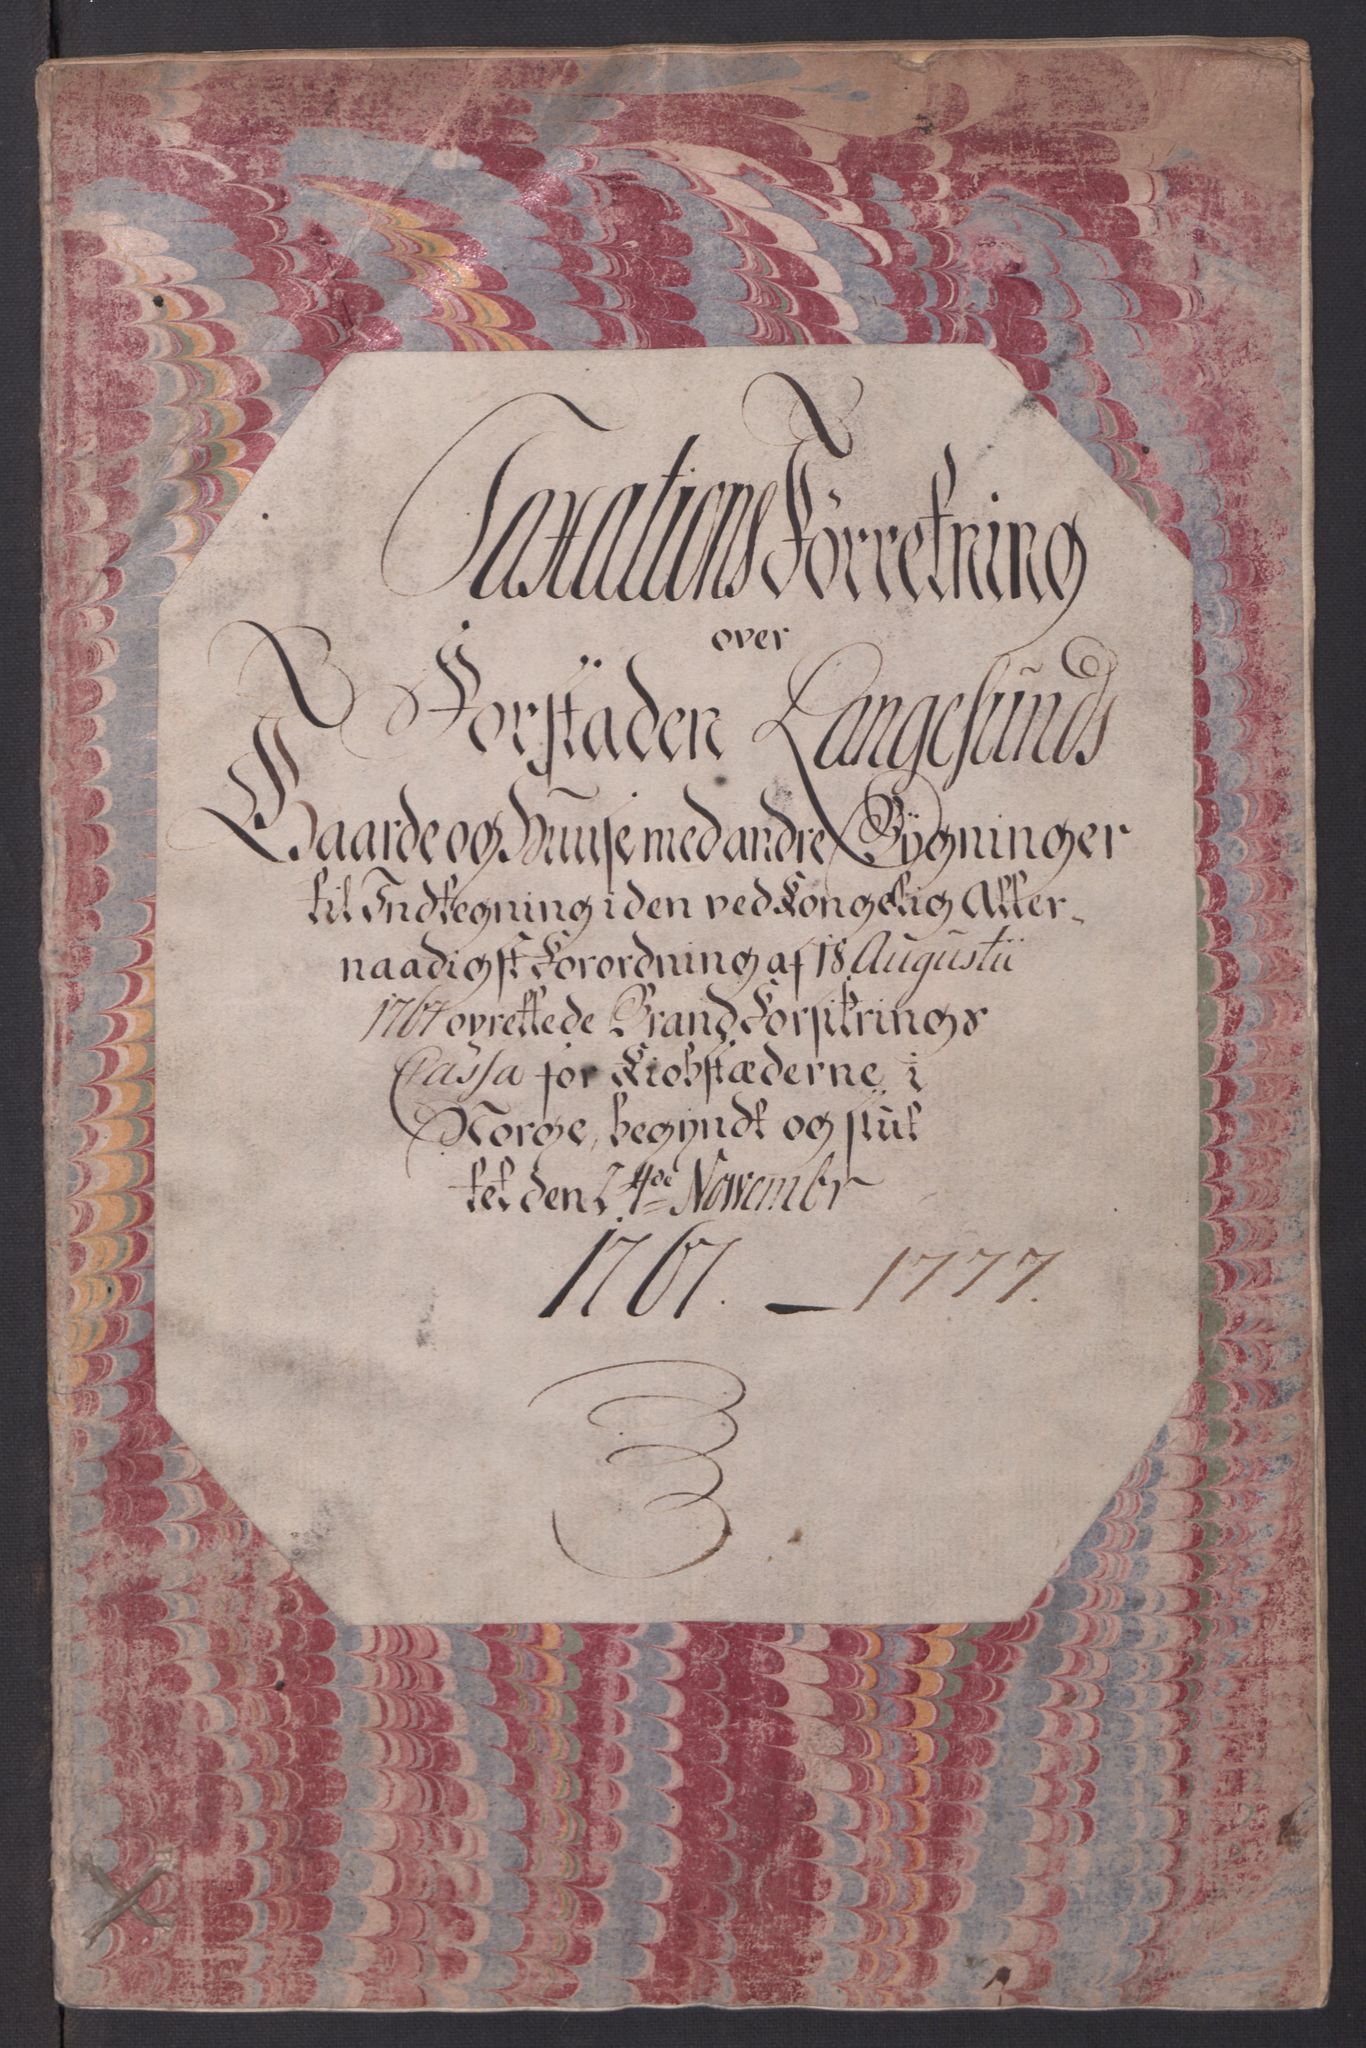 Taxations Förretning
over
Forstäden Langesünds
Gaarde og Huuse med andre Bÿgninger
til Indtegning i den ved Kongelig Aller-
naadigst Forordning af 18 Augustii
1767 oprettede Brand Forsikrings
Cassa for Kiobstæderne i
Norge, begyndt og slut
tet den 24de Novembr
1767. — 1777.